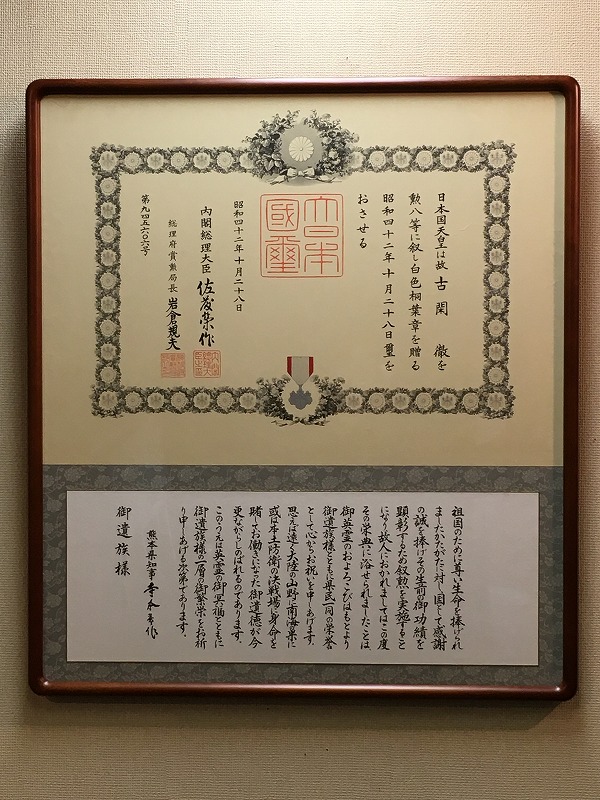 日本国天皇は故古閑徹を
勲八等に叙し白色桐葉章を贈る
昭和四十二年十月二十八日璽を
おさせる
大日本
國璽
昭和四十二年十月二十八日
内閣総理大臣 佐藤榮作
総理府賞勲局長 岩倉規夫
第九四五六〇六号
祖国のために尊い生命を捧げられ
ましたかたがたに対し国として感謝
の誠を捧げその生前の御功績を
顕彰するため叙勲を実施すること
になり故人におかれましてはこの度
その栄典に浴せられましたことは
御英霊のおよろこびはもとより
御遺族様とともに県民一同の栄誉
として心からお祝いを申しあげます。
思えば遠く大陸の山野に南海の果に
或は本土防衛の決戦場に身命を
賭してお働きになった御遺徳が今
更ながらしのばれるのであります。
このうえは英霊の御冥福とともに
御遺族様の一層の御繁栄をお祈
り申しあげる次第であります。
熊本県知事 寺本広作
御遺族様